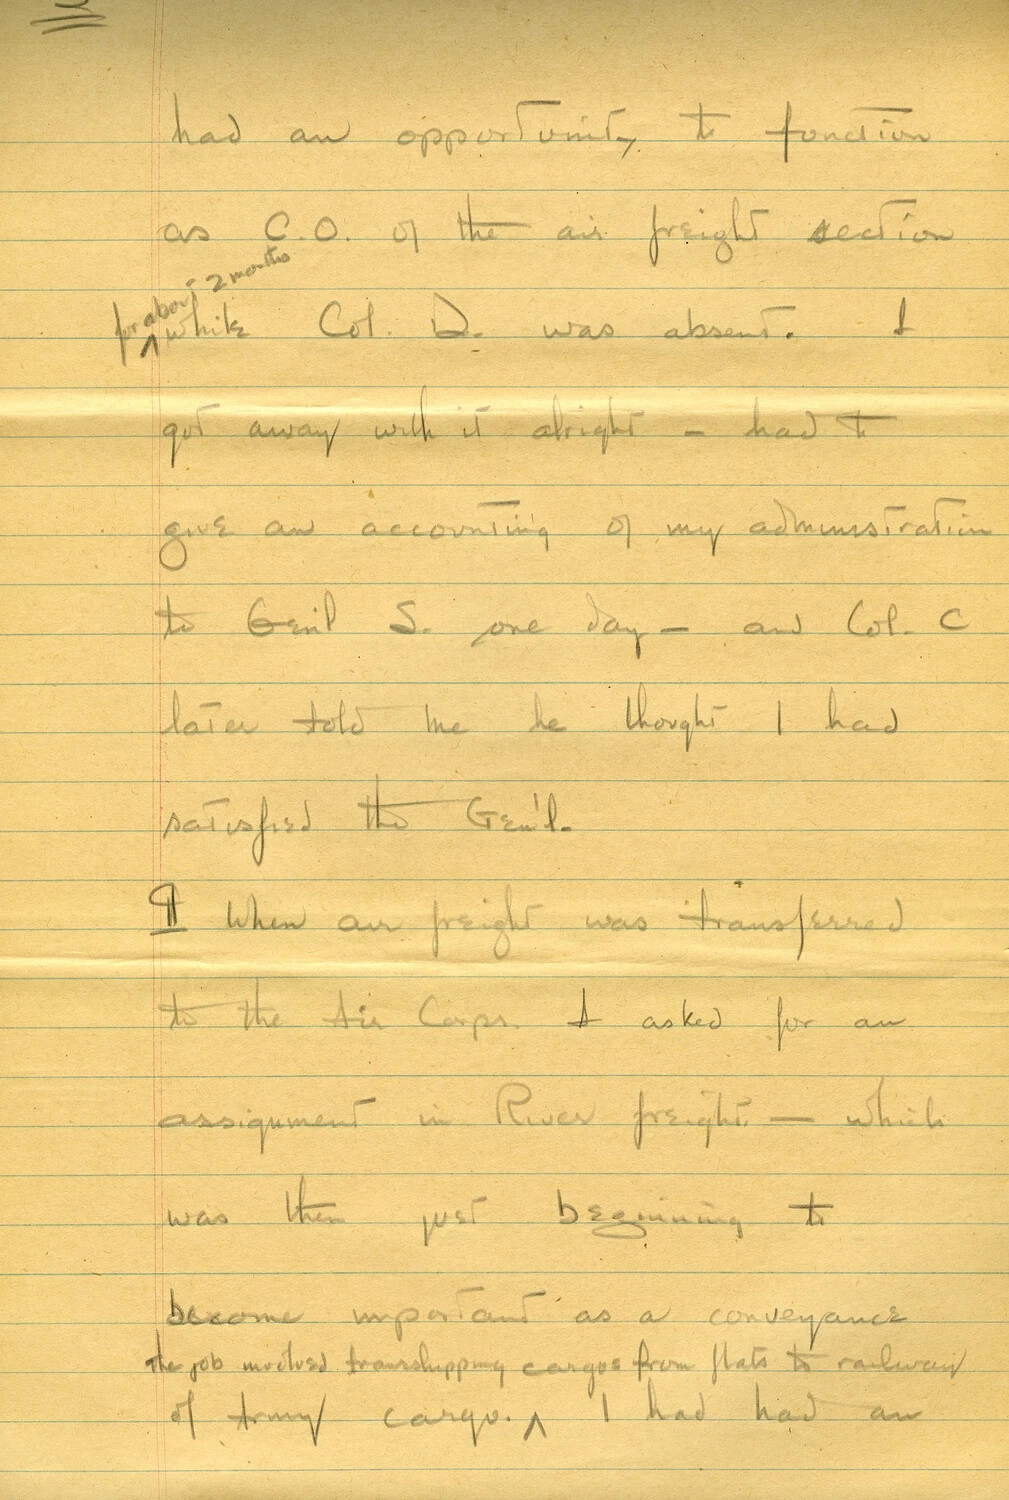 3
had an opportunity to function
as C.O. of the air freight section
for about 2 months
while Col. D. was absent. I
got away with it alright — had to
give an accounting of my administration
to Gen'l S. one day — and Col. C
later told me he thought I had
satisfied the Gen'l.
¶ When air freight was transferred
to the Air Corps. I asked for an
assignment in River freight — which
was then just beginning to
become important as a conveyance
The job involved transshipping cargoes from flats to railway
of Army cargo. ^ I had had an